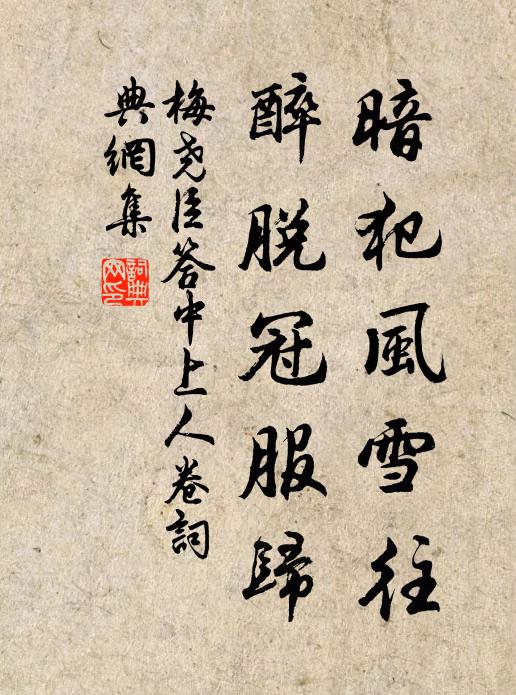 暗犯風雪往
醉脱冠服歸
梅尧臣答中上人卷詞
典網集
詞典
网印